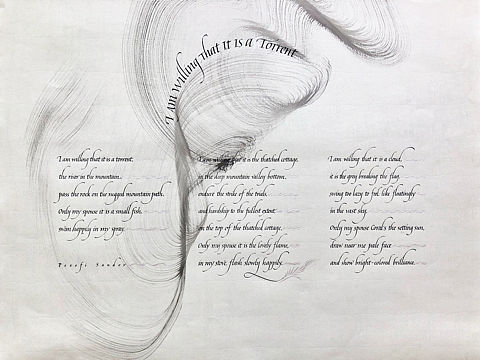 I am willing that it is a Torrent
I am willing that it is a torrent,
the river in the mountain...
pass the rock on the rugged mountain path.
Only my spouse it is a small fish,
swim happily in my spray.
Petofi Sandor
I am willing that it is the thatched cottage,
in the deep mountain valley bottom,
endure the strike of the trials
and hardship to the fullest extent.
in the top of the thatched cottage,
Only my spouse it is the lovely flame,
in my stove, flash slowly happily.
I am willing that it is a cloud,
it is the grey breaking the flag,
swing too lazy to feel like floatingly
in the vast sky,
Only my spouse the setting sun,
draw near me pale face
and show bright-colored brilliance.